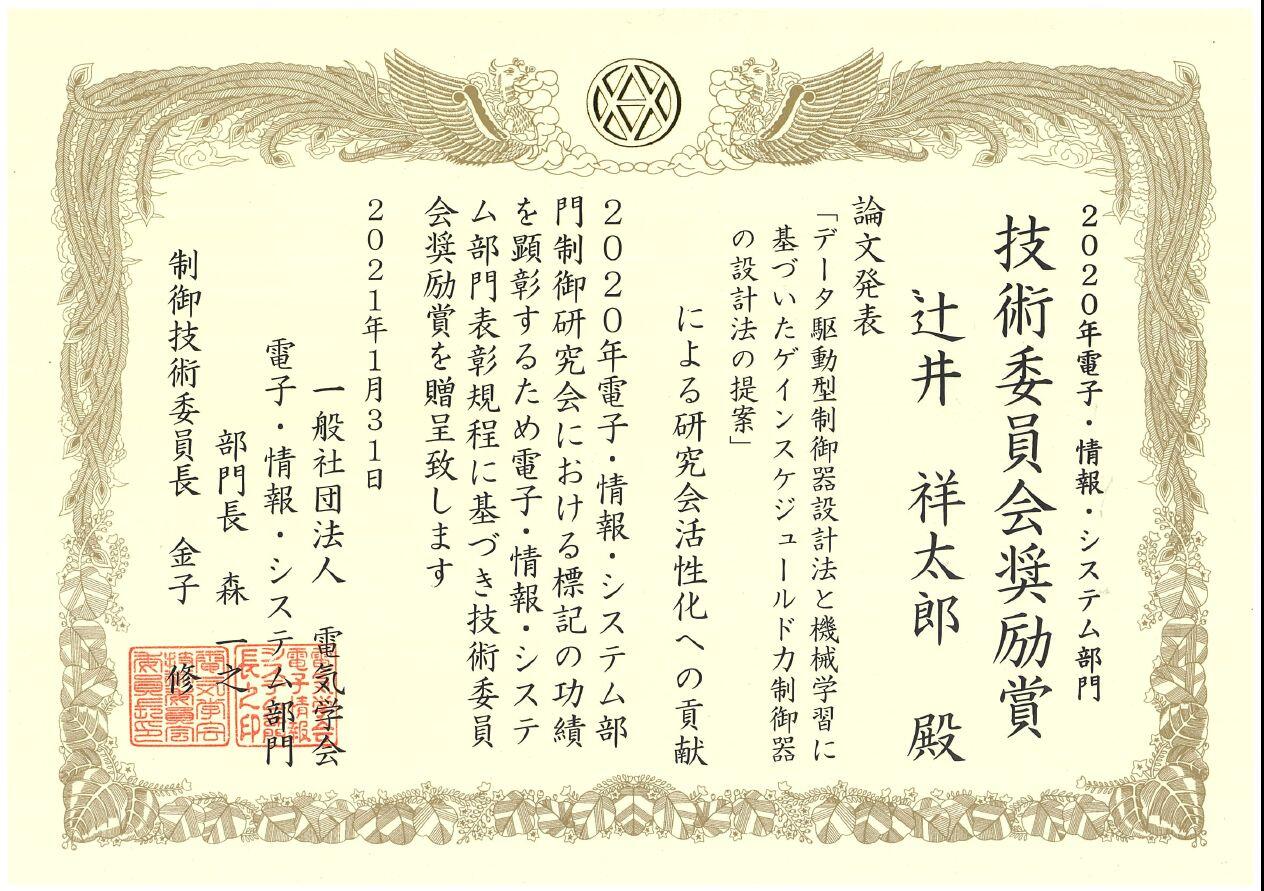 ２０２０年電子・情報・システム部門
技術委員会奨励賞
辻井　祥太郎　殿
論文発表
「データ駆動型制御器設計法と機械学習に
基づいたゲインスケジュールドカ制御器
の設計法の提案」
による研究会活性化への貢献
２０２０年電子・情報・システム部
門制御研究会における標記の功績
を顕彰するため電子・情報・システ
ム部門表彰規程に基づき技術委員
会奨励賞を贈呈致します
２０２１年１月３１日
一般社団法人　電気学会
電子・情報・システム部門
部門長　森　一之
制御技術委員長　金子　修